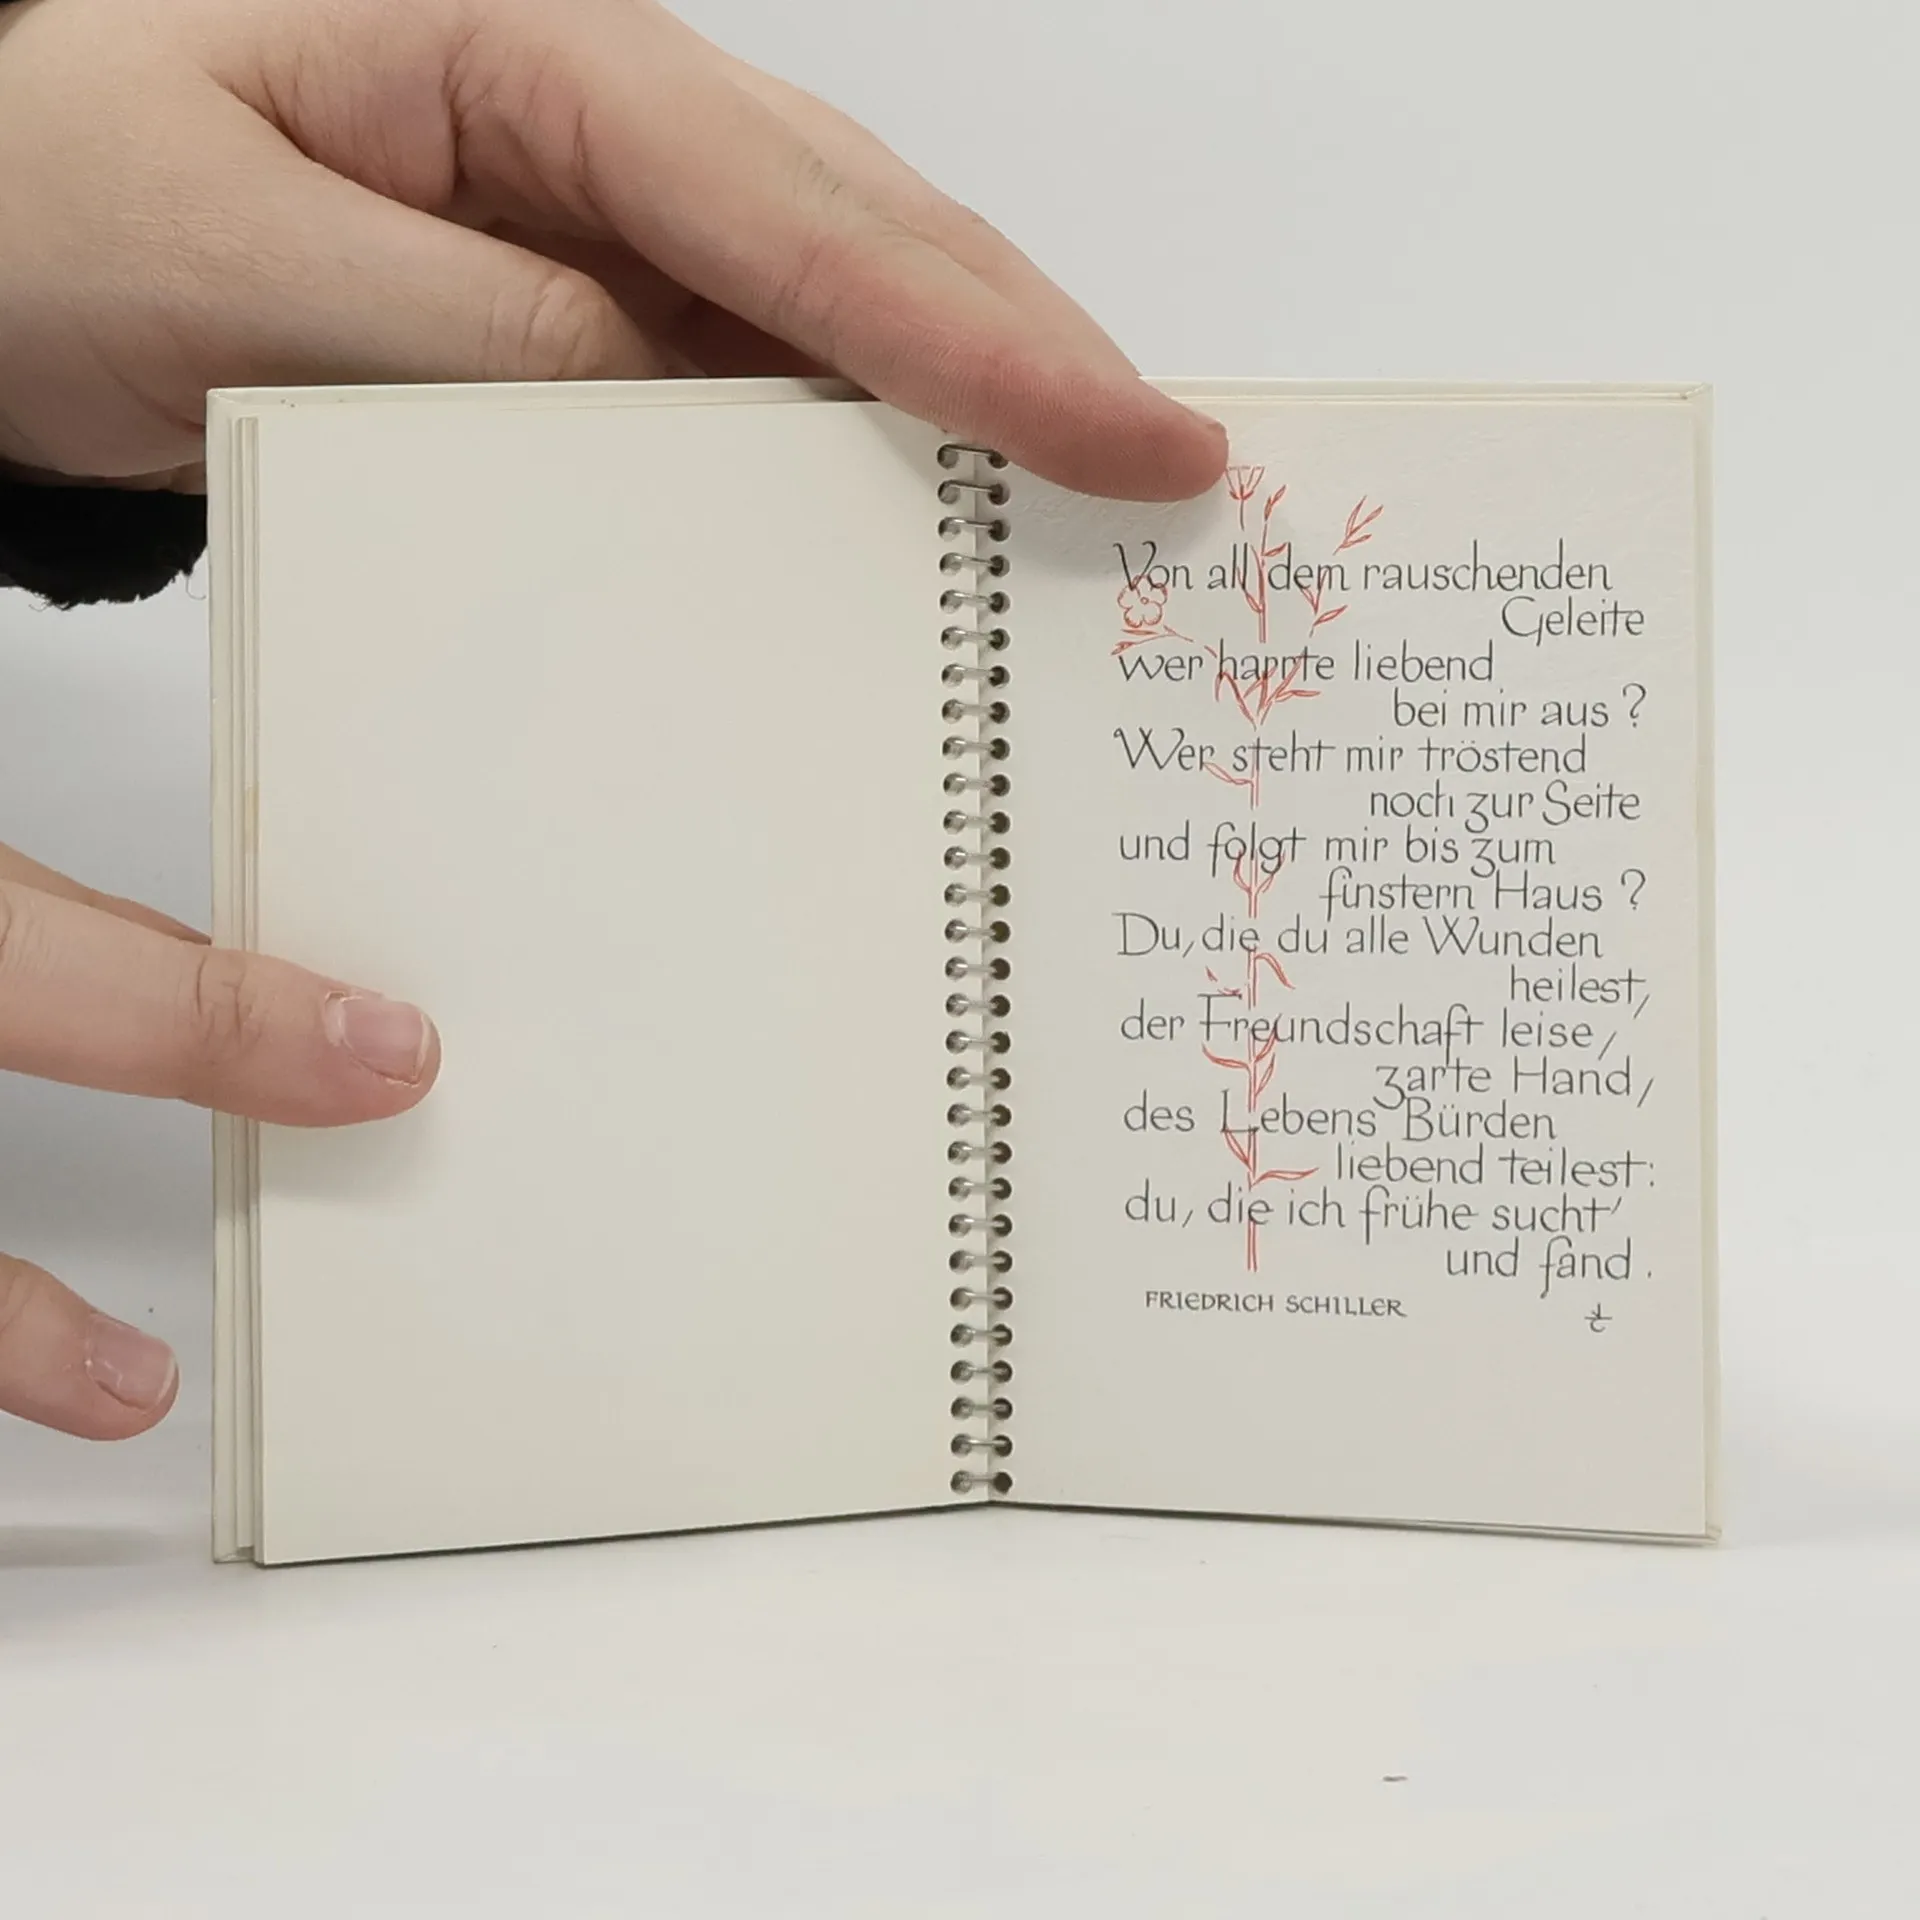 Von all dem rauschenden
Geleite
wer harrte liebend
bei mir aus ?
Wer steht mir tröstend
noch zur Seite
und folgt mir bis zum
finstern Haus ?
Du, die du alle Wunden
heilest,
der Freundschaft leise,
zarte Hand,
des Lebens Bürden
liebend teilest:
du, die ich frühe sucht'
und fand.
FRIEDRICH SCHILLER